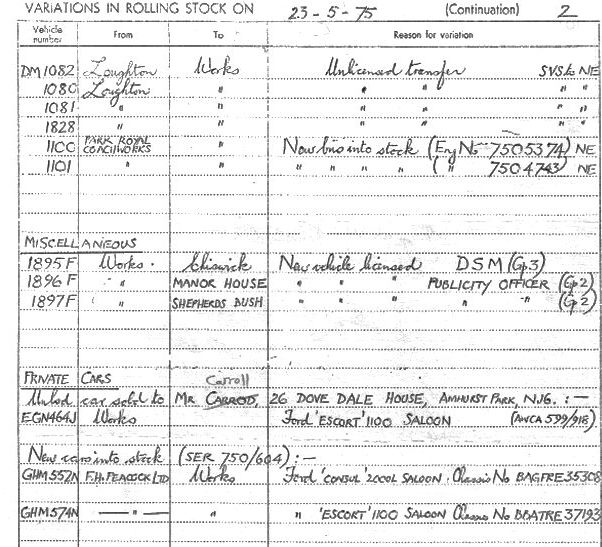 VARIATIONS IN ROLLING STOCK ON 23-5-75 (Continuation) 2
Vehicle number From To Reason for variation
DM1082 Loughton Works Unlicensed transfer SVS to NE
1080 Loughton " " " " "
1081 " " " " " "
1828 " " " " " "
1100 PARK ROYAL COACHWORKS " New bus into stock (Eng No 7505374) NE
1101 " " " " " " ( " 7504743) NE
MISCELLANEOUS
1895F Works. Chiswick New vehicle licensed DSM (Gp3)
1896F " MANOR HOUSE " " " PUBLICITY OFFICER (Gp2)
1897F " SHEPHERDS BUSH " " " " " (Gp2)
PRIVATE CARS Carroll
car sold to MR CARROTS, 26 DOVE DALE HOUSE, AMHURST PARK, N.16. :—
EGN464J Works Ford 'ESCORT' 1100 SALOON (AWCA 599/918)
New cars into stock (SER 750/604) :—
GHM552N F.H. PEACOCK LTD Works Ford 'CONSUL' 2000L SALOON. Chassis No BAGFRE35308
GHM574N —"— " " 'ESCORT' 1100 SALOON Chassis No BBATRE37193